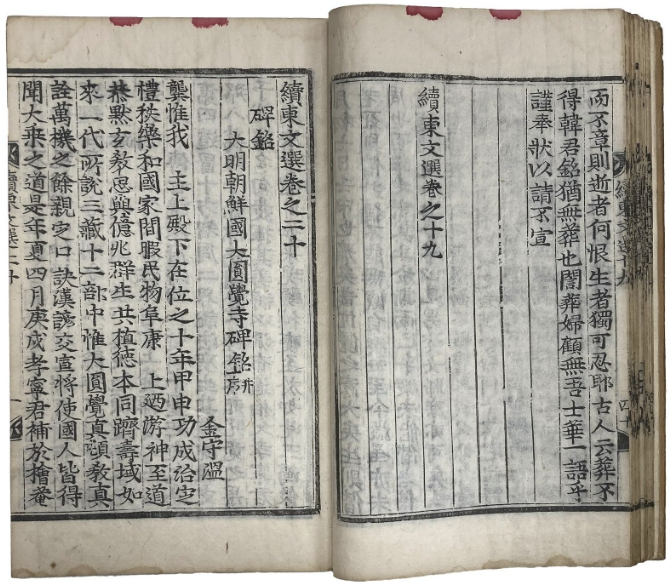 續東文選十九
四十
而不章則逝者何恨生者獨可忍耶古人云葬不
得韓君銘猶無葬也闇葬婦顧無吾士華一語乎
謹奉狀以請不宣
續東文選卷之十九
續東文選卷之二十
碑銘
大明朝鮮國大圓覺寺碑銘并序
金守溫
龔惟我 主上殿下在位之十年甲申功成治定
禮秩樂和國家閒暇民物阜康 上迺游神至道
恭默玄教思與億兆群生共植德本同躋壽域如
來一代所說三藏十二部中惟大圓覺真頓教真
詮萬機之餘親㝎口訣漢諺交宣將使國人皆得
聞大乘之道是年夏四月庚戌孝寧君補於檜菴
續東文選二十
一